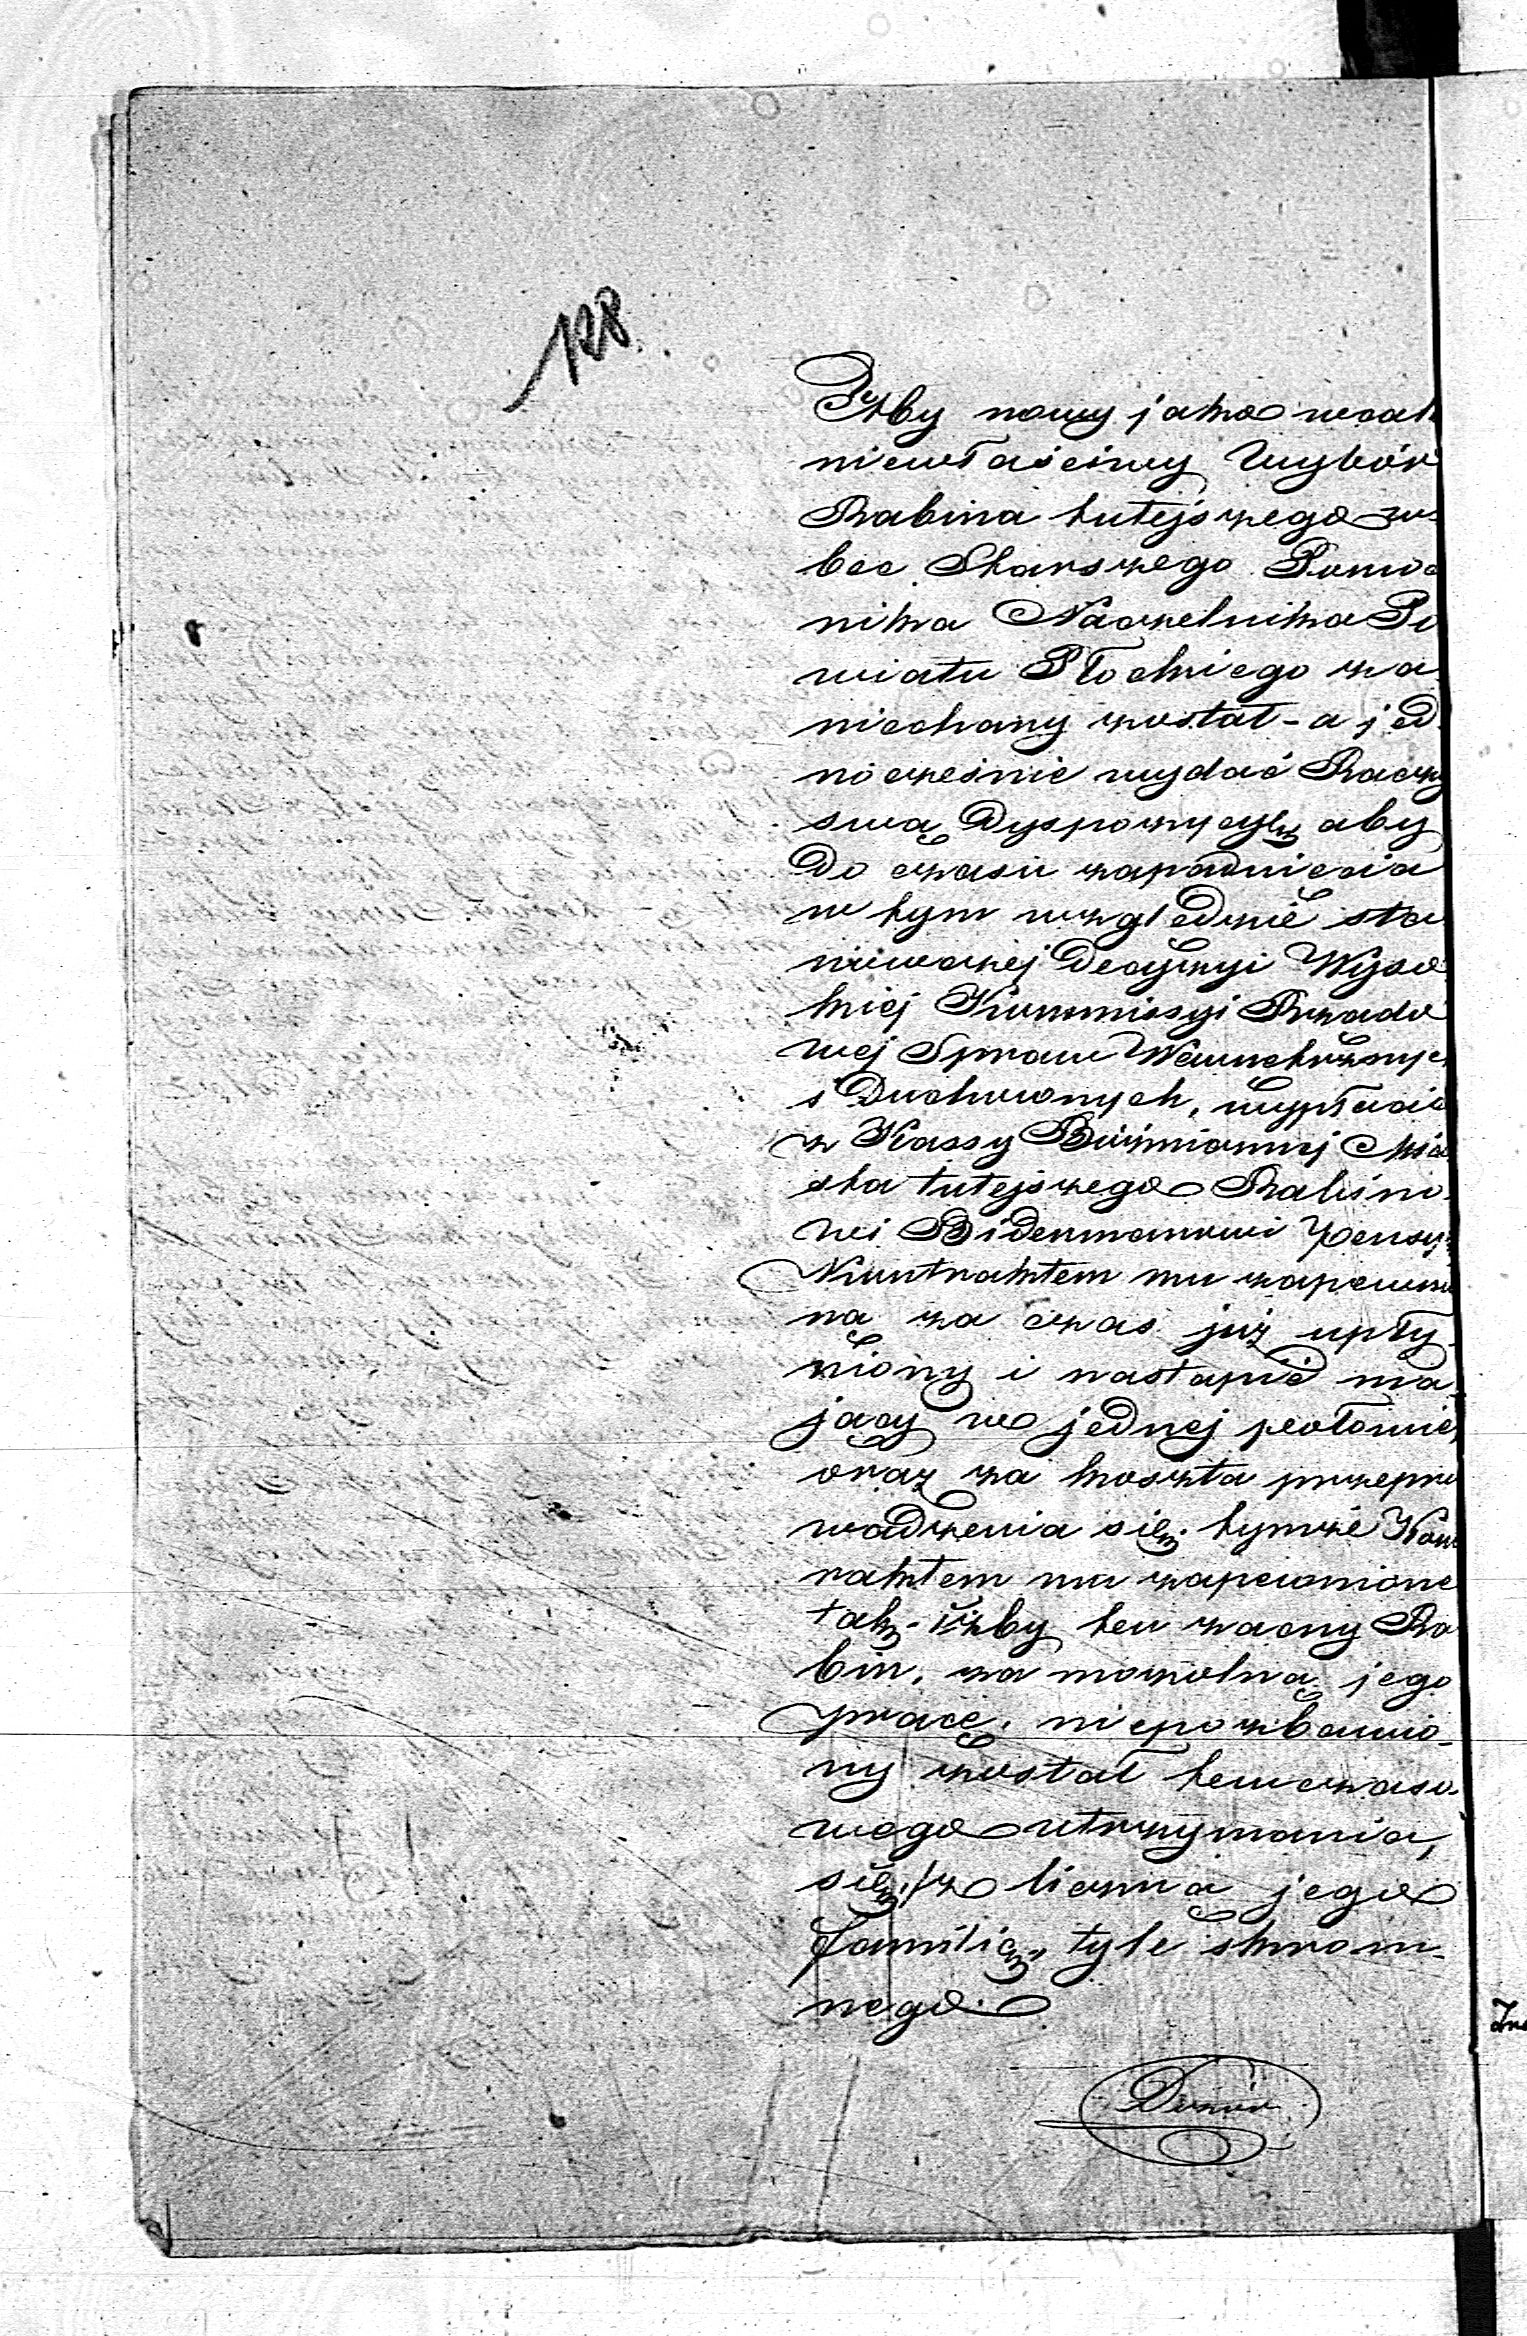 128.
Iżby nowy jako wcale
niewłaściwy Wybór
Rabina tutejszego wo-
bec Starszego Pomoc
nika Naczelnika Po
wiatu Płockiego za
niechany został - a jed
nocześnie wydać Raczy
swą Dyspozycyę aby
Do czasu zapadnięcia
w tym względzie sta
nowczej Decyzyi Wyso
kiej Kommissyi Rządo
wej Spraw Wewnętrznyc
i Duchownych, wypłacić
z Kassy Bóżnicznej Mia
sta tutejszego Rabino
wi Bidermanowi pensyę
Kontraktem mu zapewnio
ną za czas już upły-
niony i nastąpić ma-
jący w jednej połowie,
oraz za koszta przepro
wadzenia się tymże Kont
raktem mu zapewnione
tak iżby ten zacny Ra
bin, za mozolną jego
pracę, niepozbawio-
ny został tymczaso-
wego utrzymania,
się /z liczną jego
familią, tyle skrom-
nego.